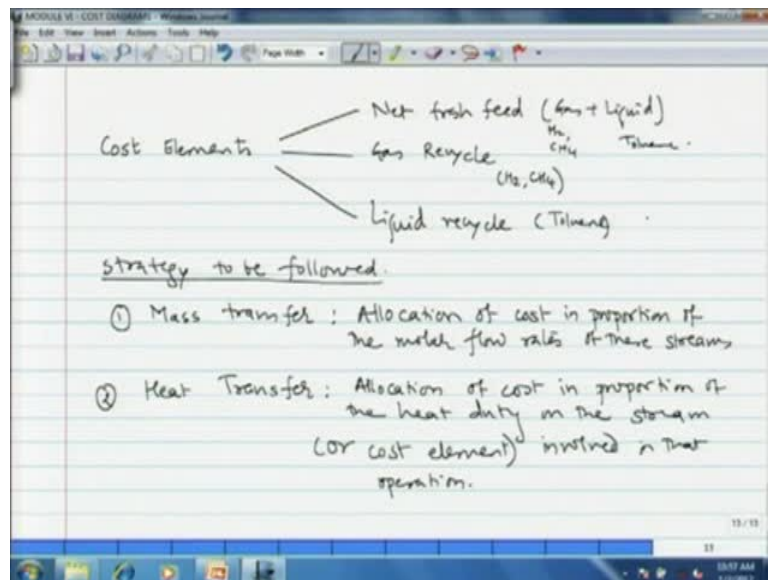 MODULE VI - COST DIAGRAMS - Windows Journal
File Edit View Insert Actions Tools Help
Page Width
Net fresh feed (Gas + Liquid)
H2, CH4 Toluene.
Cost Elements
Gas Recycle
(H2, CH4)
Liquid recycle (Toluene)
strategy to be followed.
① Mass transfer : Allocation of cost in proportion of
the molar flow rates of these streams
② Heat Transfer : Allocation of cost in proportion of
the heat duty on the stream
(or cost element) involved in that
operation.
13/13
13
10:57 AM